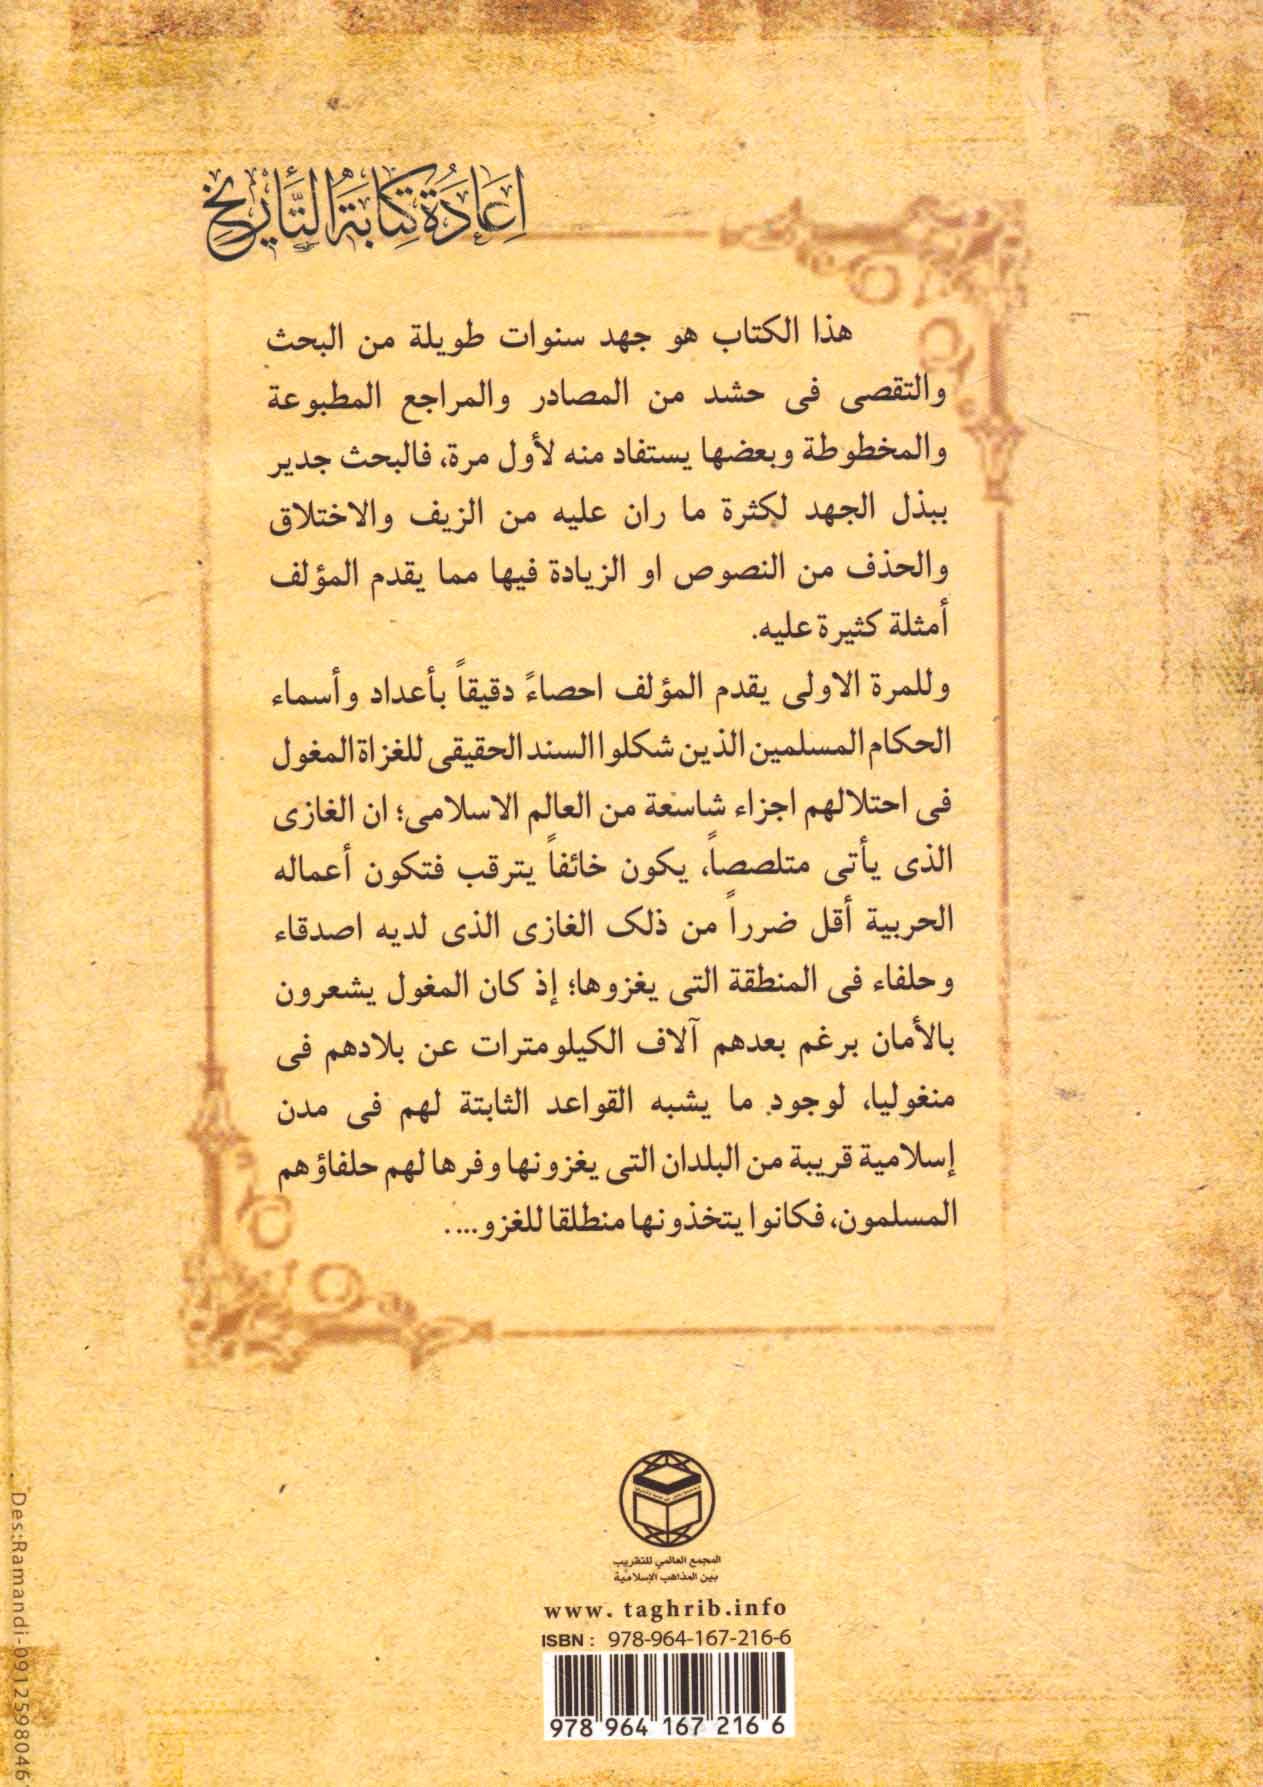 إعَادَةُ كِتَابَةُ التَّأريخ
هذا الكتاب هو جهد سنوات طويلة من البحث
والتقصى فى حشد من المصادر والمراجع المطبوعة
والمخطوطة وبعضها يستفاد منه لأول مرة، فالبحث جدير
ببذل الجهد لكثرة ما ران عليه من الزيف والاختلاق
والحذف من النصوص او الزيادة فيها مما يقدم المؤلف
أمثلة كثيرة عليه.
وللمرة الاولى يقدم المؤلف احصاءً دقيقاً بأعداد وأسماء
الحكام المسلمين الذين شكلوا السند الحقيقى للغزاة المغول
فى احتلالهم اجزاء شاسعة من العالم الاسلامى؛ ان الغازى
الذى يأتى متلصصاً، يكون خائفاً يترقب فتكون أعماله
الحربية أقل ضرراً من ذلک الغازى الذى لديه اصدقاء
وحلفاء فى المنطقة التى يغزوها؛ إذ كان المغول يشعرون
بالأمان برغم بعدهم آلاف الكيلومترات عن بلادهم فى
منغوليا، لوجود ما يشبه القواعد الثابتة لهم فى مدن
إسلامية قريبة من البلدان التى يغزونها وفرها لهم حلفاؤهم
المسلمون، فكانوا يتخذونها منطلقا للغزو....
المجمع العالمي للتقريب
بين المذاهب الإسلامية
www. taghrib.info
ISBN : 978-964-167-216-6
978 964 167 216 6
Des:Ramandi-0912598046